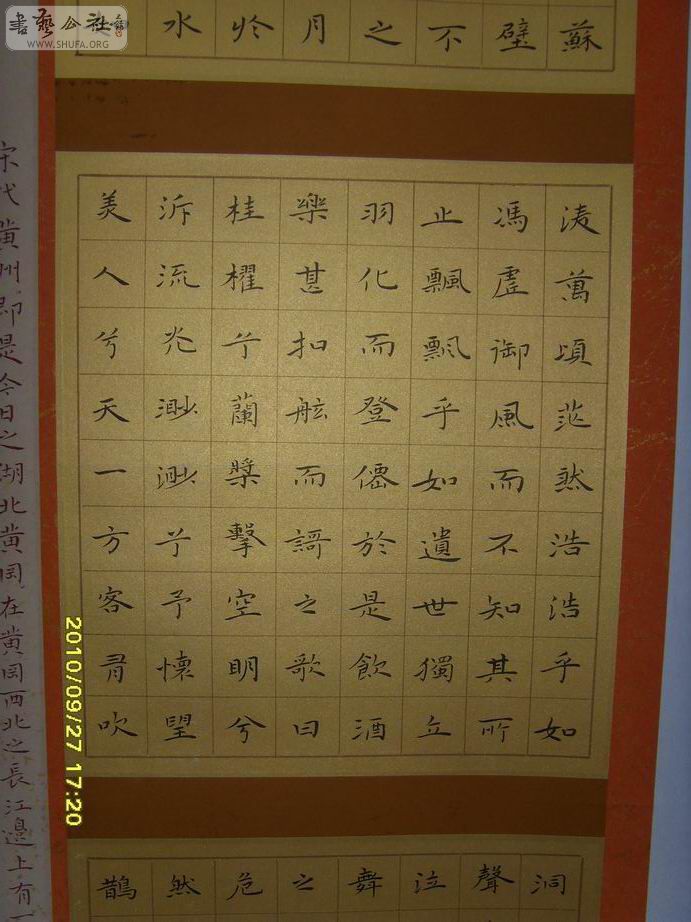 書藝公社
WWW.SHUFA.ORG
蘇
壁
不
之
月
於
水
凌萬頃茫然浩浩乎如
馮虛御風而不知其所
止飄飄乎如遺世獨立
羽化而登僊於是飲酒
樂甚扣舷而謌之歌曰
桂櫂兮蘭槳擊空明兮
泝流光渺渺兮予懷望
美人兮天一方客有吹
洞
聲
泣
舞
之
危
然
鵲
宋代黄州,即是今日之湖北黄冈,在黄冈西北之長江邊上有一
2010/09/27 17:20